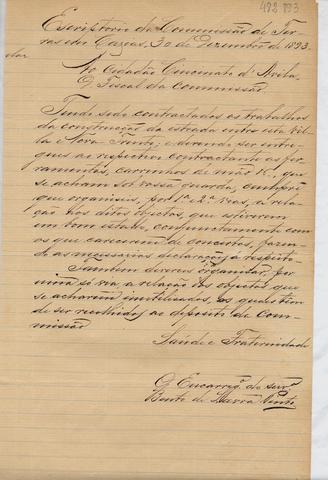 492 893
Escriptorio da Commissão de Ter-
ras em Caxias, 30 de Dezembro de 1893.
Ao Cidadão Cincinato d'Avila,
D. Fiscal da Commissão.
Tendo sido contractados os trabalhos
da construcção da estrada entre esta Vil-
la e Nova Trento; e devendo ser entre-
gues ao respectivo contractante as fer-
ramentas, carrinhos de mão &, que
se acham sob vossa guarda, cumpre
que organiseis, por 1ª e 2ª vias, a rela-
ção dos ditos objectos, que estiverem
em bom estado, conjunctamente com
os que carecerem de concertos, fazen-
do as necessarias declarações a respeito.
Tambem devereis organizar, por
uma só via a relação dos objectos que
se acharem inutilisados, os quaes tem
de ser recolhidos ao deposito da Com-
missão
Saude e Fraternidade
O Encarreg. do
Bento de Pinto